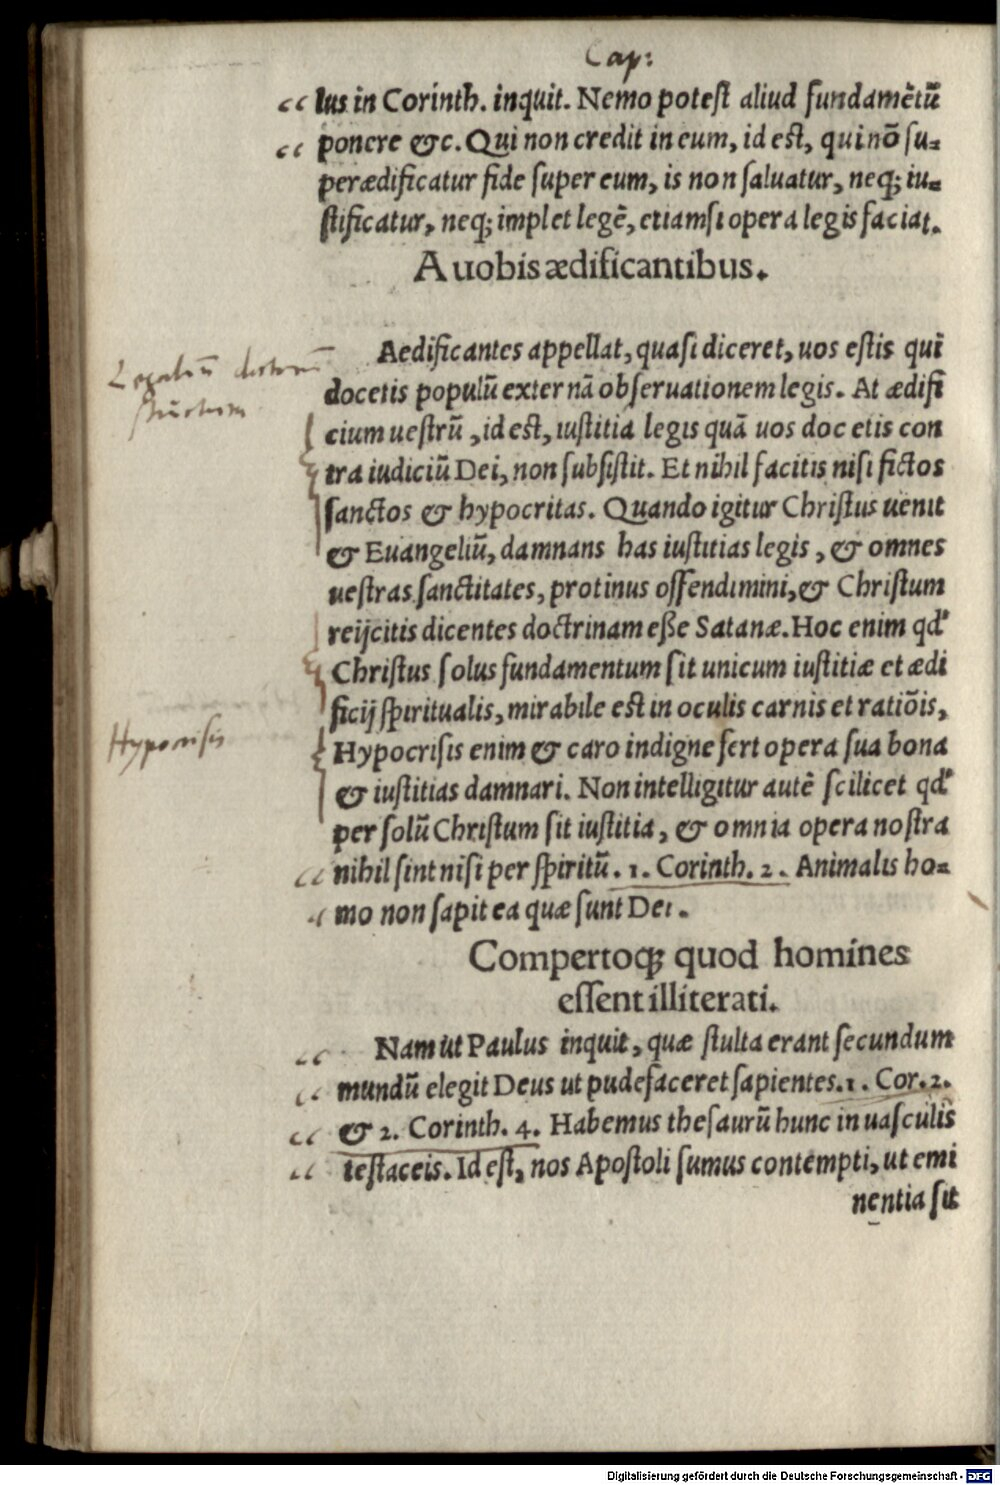 Cap:
lus in Corinth. inquit. Nemo potest aliud fundamẽtũ
ponere &c. Qui non credit in eum, id est, qui nõ su-
peræedificatur fide super eum, is non saluatur, neq; iu-
stificatur, neq; implet legẽ, etiamsi opera legis faciat.
A uobis ædificantibus.
Aedificantes appellat, quasi diceret, uos estis qui
docetis populũ externã obseruationem legis. At ædifi
cium uestrũ, id est, iustitia legis quã uos docetis con
tra iudiciũ Dei, non subsistit. Et nihil facitis nisi fictos
sanctos & hypocritas. Quando igitur Christus uenit
& Euangeliũ, damnans has iustitias legis, & omnes
uestras sanctitates, protinus offendimini, & Christum
reijcitis dicentes doctrinam eße Satanæ. Hoc enim qd'
Christus solus fundamentum sit unicum iustitiæ et ædi
ficij spiritualis, mirabile est in oculis carnis et ratiõis,
Hypocrisis
Hypocrisis enim & caro indigne fert opera sua bona
& iustitias damnari. Non intelligitur autẽ scilicet qd'
per solũ Christum sit iustitia, & omnia opera nostra
nihil sint nisi per spiritũ. 1. Corinth. 2. Animalis ho-
mo non sapit ea quæ sunt Dei.
Compertoq; quod homines
essent illiterati.
Nam ut Paulus inquit, quæ stulta erant secundum
mundũ elegit Deus ut pudefaceret sapientes. 1. Cor. 2.
& 2. Corinth. 4. Habemus thesaurũ hunc in uasculis
testaceis. Id est, nos Apostoli sumus contempti, ut emi
nentia sit
Digitalisierung gefördert durch die Deutsche Forschungsgemeinschaft - DFG